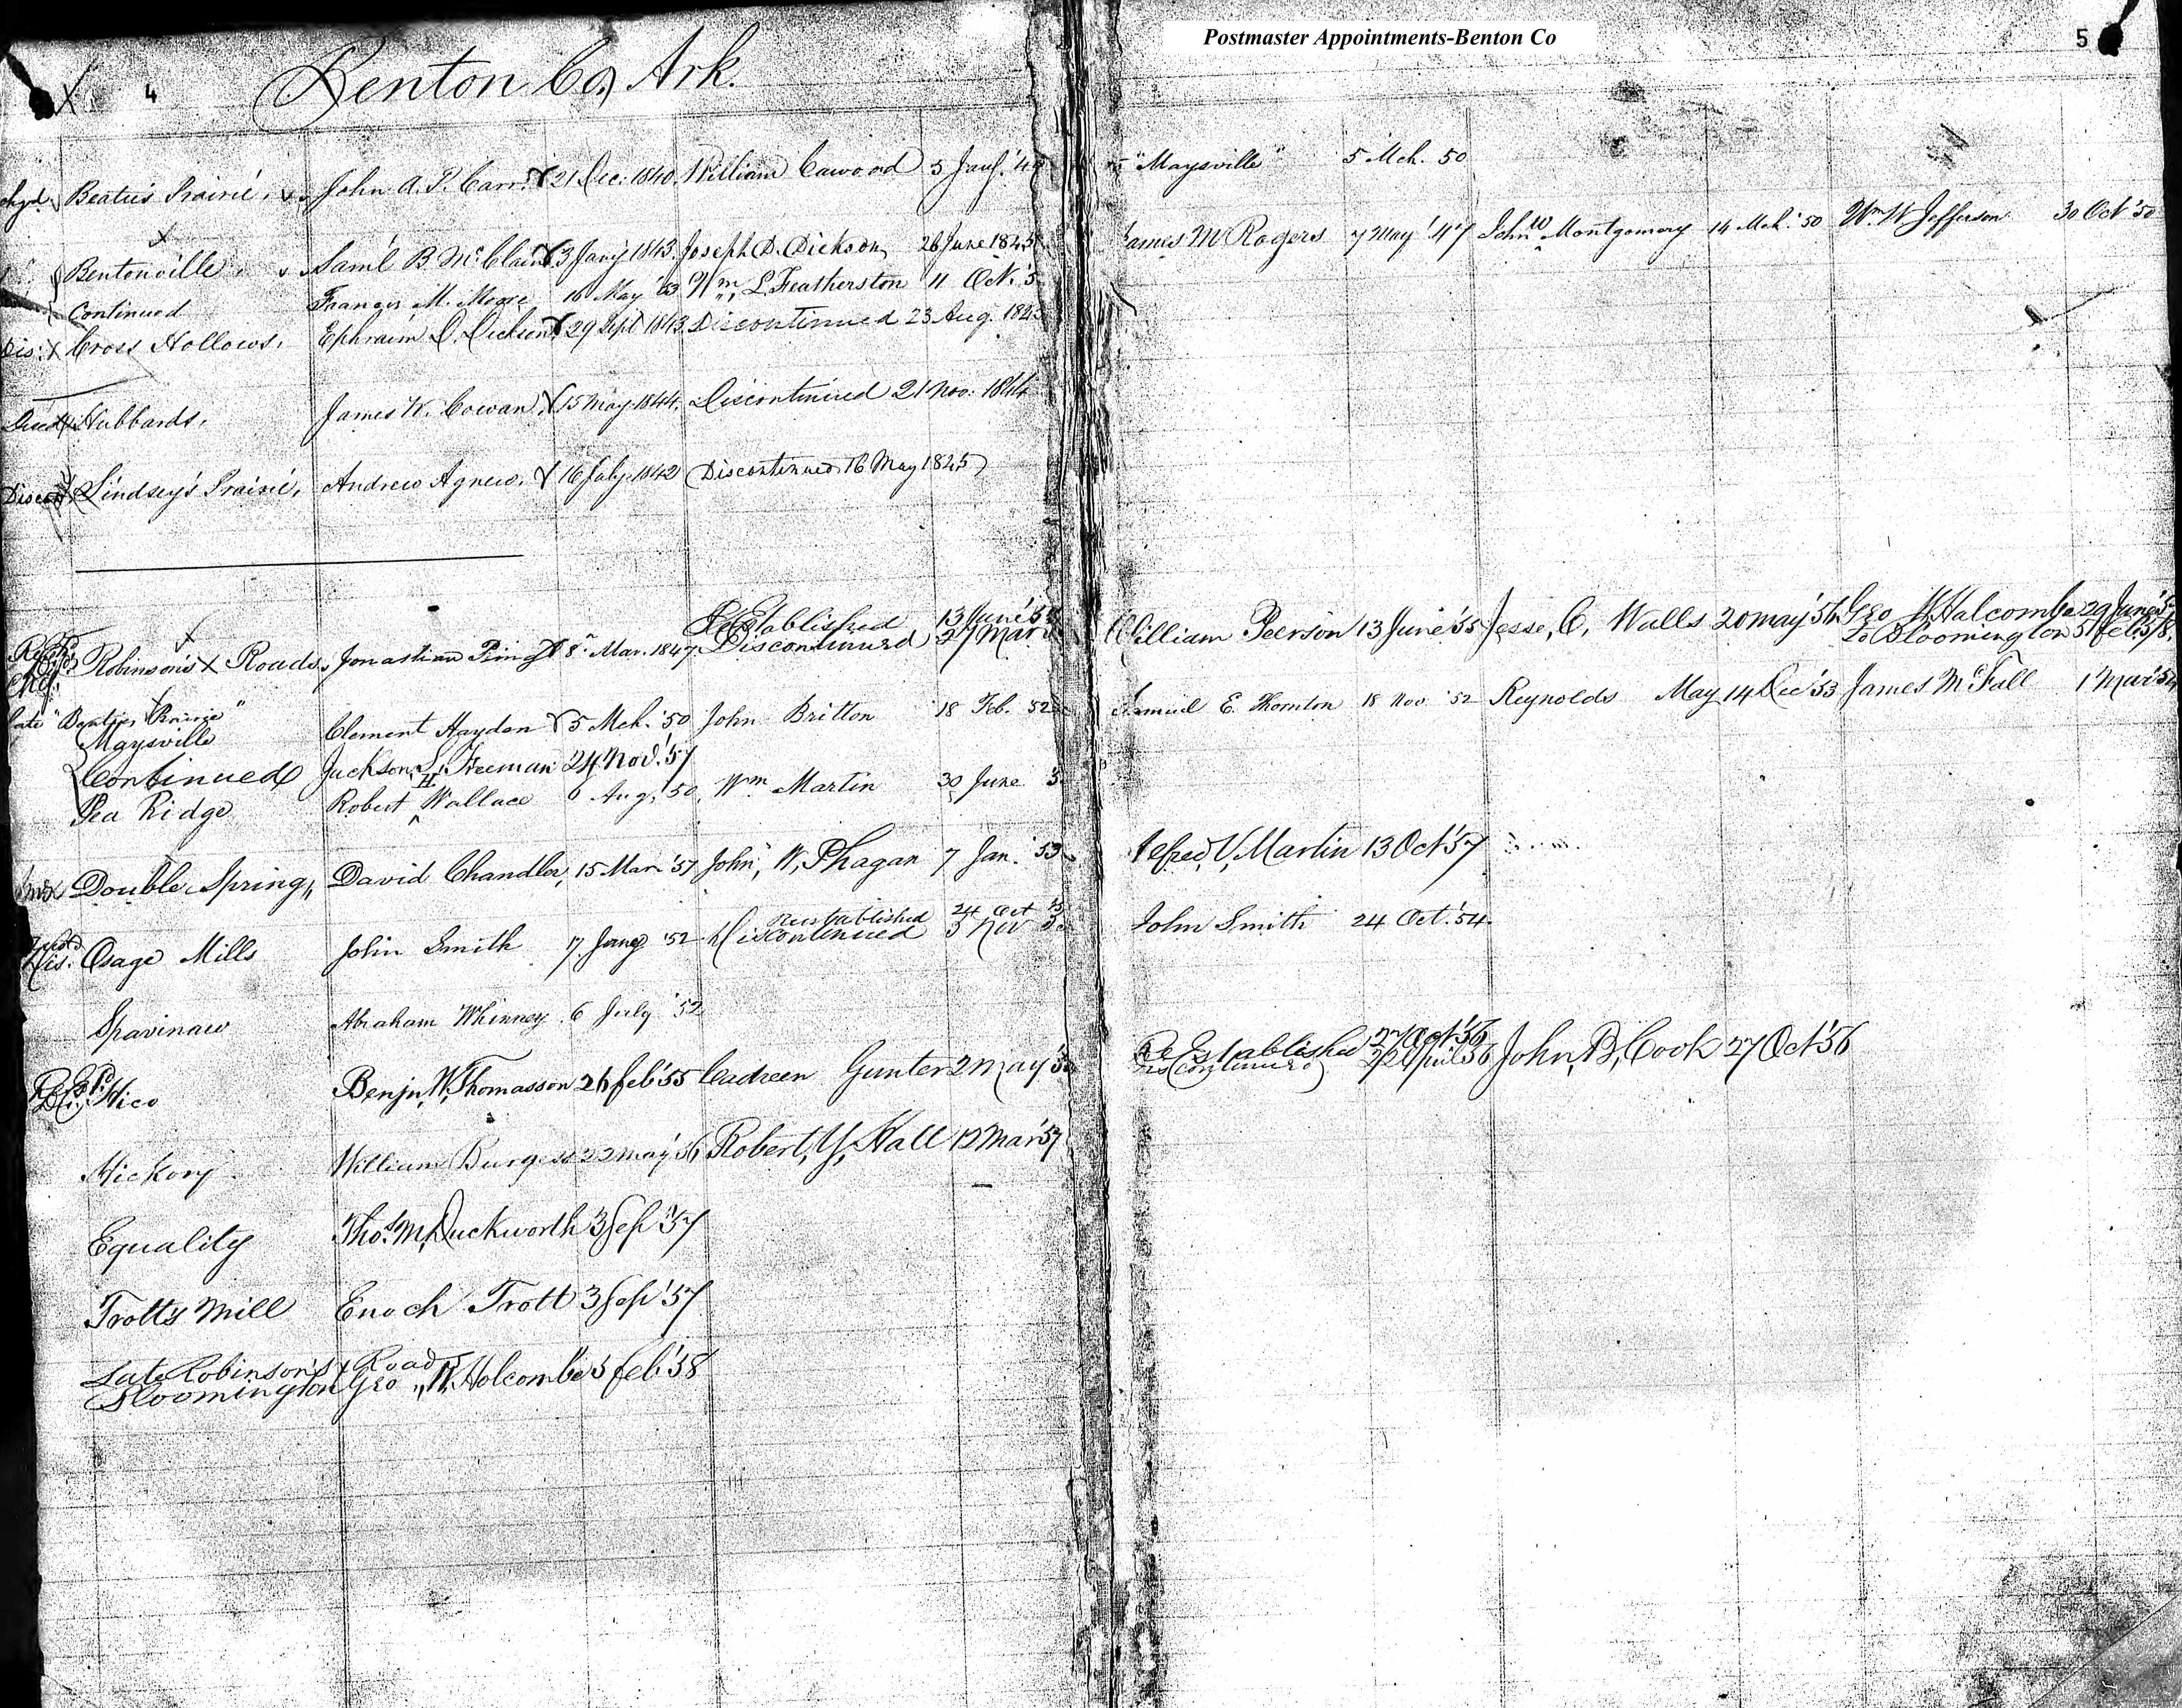 Postmaster Appointments-Benton Co
4
5
Benton Co, Ark.
chgd. Beaties Prairie, John A. P. Carr. 21 Dec. 1840. William Cawood 5 Jany. "Maysville" 5 Mch. 50
Bentonville, Saml B. McClain 3 Jany 1843. Joseph D. Dickson 26 June 1845 James M Rogers 7 May '47 John W Montgomery 14 Mch. '50 Wm W Jefferson 30 Oct '50
Continued Francis M. Moore 16 May '53 Wm L. Featherston 11 Oct.
Dis. Cross Hollows. Ephraim D. Dickson 29 Sept 1843. Discontinued 23 Aug.
Hubbards. James W. Cowan. 15 May 1844. Discontinued 21 Nov. 1844
Discon Lindsey's Prairie. Andrew Agnew. 16 July 1842 Discontinued 16 May 1845
ReEstablished 13 June '55
Robinson's X Roads. Jonathan Ping 8 Mar. 1847. Discontinued 27 Mar William Peerson 13 June '55 Jesse, C, Walls 20 May '56 Geo W Halcombe 29 June
To Bloomington 5 feb '58
late "Beaties Prairie"
Maysville Clement Hayden 5 Mch. '50 John Britton 18 Feb. 52 Samuel E. Thornton 18 Nov. '52 Reynolds May 14 Dec '53 James McFall 1 Mar
Continued Jackson L. Freeman 24 Nov. '57
Pea Ridge Robert H. Wallace 6 Aug. '50. Wm Martin 30 June
Double Spring, David Chandler, 15 Mar. '51 John, W, Phagan 7 Jan. '53 Alfred, V, Martin 13 Oct '57
reestablished 24 Oct
Dis. Osage Mills John Smith 17 Jany '52 Discontinued 3 Nov John Smith 24 Oct. '54.
Spavinaw Abraham Whinney 6 July '52
Re Established 27 Oct '56
Hico Benjn, W, Thomasson 26 feb '55 Cadreen Gunter 2 May Discontinued 22 April '56 John, B, Cook 27 Oct '56
Hickory William Burgess 22 May '56 Robert, Y, Hall 12 Mar '57
Equality Thos. M, Duckworth 3 Sep '57
Trotts Mill Enoch Trott 3 Sep '57
Late Robinson's X Roads
Bloomington Geo, W, Holcombe 5 feb '58